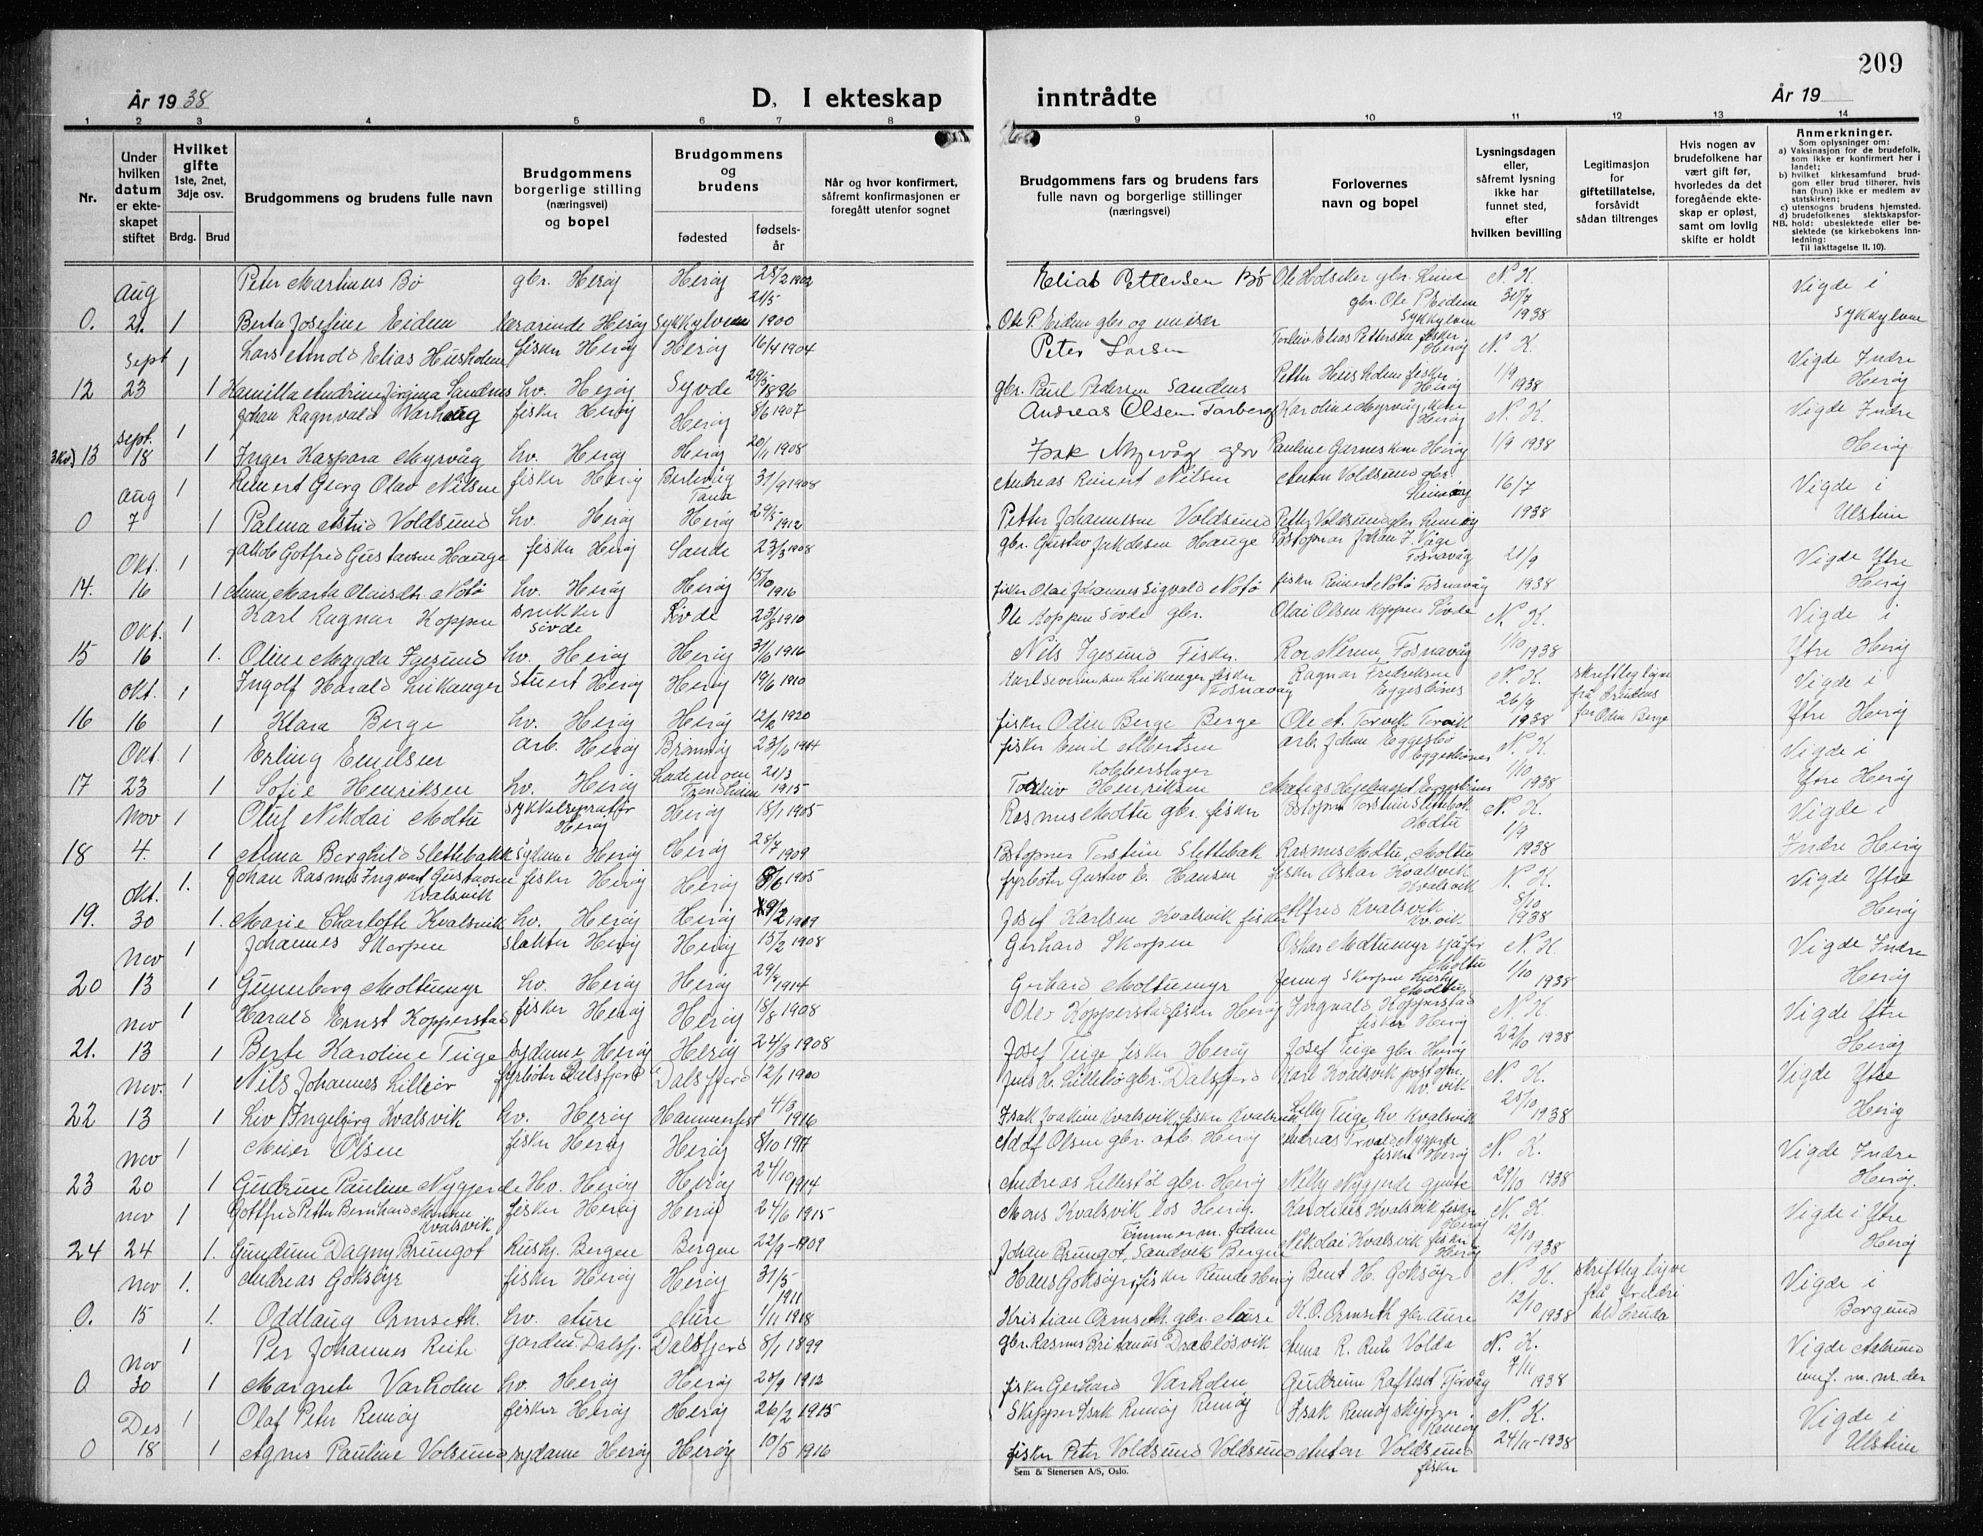 209
År 1938 D. I ekteskap inntrådte År 19
1 2 3 4 5 6 7 8 9 10 11 12 13 14
Nr.
Under hvilken datum er ekteskapet stiftet
Hvilket gifte 1ste, 2net, 3dje osv.
Brdg. Brud
Brudgommens og brudens fulle navn
Brudgommens borgerlige stilling (næringsvei) og bopel
Brudgommens og brudens
fødested
fødselsår
Når og hvor konfirmert, såfremt konfirmasjonen er foregått utenfor sognet
Brudgommens fars og brudens fars fulle navn og borgerlige stillinger (næringsvei)
Forlovernes navn og bopel
Lysningsdagen eller, såfremt lysning ikke har funnet sted, efter hvilken bevilling
Legitimasjon for giftetillatelse, forsåvidt sådan tiltrenges
Hvis nogen av brudefolkene har vært gift før, hvorledes da det foregående ekteskap er opløst, samt om lovlig skifte er holdt
Anmerkninger.
Som oplysninger om:
a) Vaksinasjon for de brudefolk, som ikke er konfirmert her i landet;
b) hvilket kirkesamfund brudgom eller brud tilhører, hvis han (hun) ikke er medlem av statskirken;
c) utensogns brudens hjemsted.
d) brudefolkenes slektskapsforhold: ubeslektede eller beslektede (se kirkebokens innledning:
NB.
Til iakttagelse II. 10).
Aug Peter Martinus Bø gbr. Herøy Herøy 28/2 1902 Elias Pettersen Bø Ole Holseker gbr. N. K. Vigde i
0. 21. 1 Berta Josefine Eidem lærarinde Herøy Sykkylven 21/5 1900 Ole P. Eidem gbr og gbr. Ole P. Eidem Sykkylven 30/7 1938 Sykkylven
Sept 1 Lars Elias Husholm fisker Herøy Herøy 16/4 1904 Peter Larsen Torleiv Elias Pettersen fisker Herøy N. K. Vigde Indre
12 23 1 Kamilla Andrine Jørgina Sandnes hv. Herøy Syvde 29/5 1896 gbr. Paul Pedersen Sandnes Petter Husholm fisker Herøy 1/9 1938 Herøy
1 Johan Ragnvald Varhaug fisker Herøy Herøy 8/6 1907 Andreas Olsen Tarberg Karoline Myrvåg Herøy N. K. Vigde Indre
13 Sept. 18 1 Inger Kaspara Myrvåg hv. Herøy Herøy 20/11 1908 Isak Myrvåg gbr Pauline Garnes Herøy 1/9 1938 Herøy
Aug 1 Reinert Georg Olav Nilsen fisker Herøy Berlevåg Tana 31/9 1908 Andreas Reinert Nilsen Anton Voldsund gbr. Remøy 16/7 Vigde i
0 7 1 Palma Astrid Voldsund hv. Herøy Herøy 29/5 1912 Petter Johannessen Voldsund Petter Voldsund gbr Remøy 1938 Ulstein
Okt. 1 Jakob Gotfred Gustavsen Hauge fisker Herøy Sande 23/3 1908 gbr. Gustav Jakobsen Hauge Postopner Johan J. Våge Fosnavåg 21/9 Vigde Ytre
14. 16 1 Anne Marta Olaisdtr. Notø hv. Herøy Herøy 15/10 1916 fisker Olai Johannes Sigvald Notø fisker Reinert Notø Fosnavåg 1938 Herøy
Okt. 1 Karl Ragnar Koppen snikker Sivde Sivde 23/3 1910 Ole Koppen Sivde gbr. Olai Olsen Koppen Sivde N. K. Vigde i
15 16 1. Oline Magda Igesund hv. Herøy Herøy 31/6 1916 Nils Igesund Fisker. Roe Nerem Fosnavåg 1/10 1938 Ytre Herøy
Okt. 1 Ingolf Harald Leikanger Stuert Herøy Herøy 19/6 1910 Karl Severinsen Leikanger fisker Fosnavåg Ragnar Fredriksen Eggesbønes N. K. skriftleg løyve Vigde i
16 16 1 Klara Berge hv. Herøy Herøy 1920 fisker Odin Berge Berge Ole A. Torvik Torvik 26/9 1938 frå brudens far Odin Berge Ytre Herøy
Okt. 1 Erling Emilsen arb. Herøy Brønnøy 23/6 1914 fisker Emil Albertsen arb. Johan Eggesbø Eggesbønes N. K. Vigde i
17 23 1 Sofie Henriksen hv. Herøy Lademoen Trondheim 21/3 1915 Kobberslager Torleiv Henriksen Eggesbønes 1/10 1938 Ytre Herøy
Nov 1 Oluf Nikolai Moltu Sykkelreparatør Herøy Herøy 18/1 1905 Rasmus Moltu gbr. fisker Postopner Torstein Slettebak Moltu N. K. Vigde i
18 4. 1 Alma Borghild Slettebakk Sydame Herøy Herøy 28/7 1909 Postopner Torstein Slettebak Rasmus Moltu, Moltu 1/9 1938 Indre Herøy
Okt. 1. Johan Rasmus Ingvart Gustavsen Kvalsvik fisker Herøy Herøy 8/6 1905 fyrbøter Gustav K. Hansen fisker Oskar Kvalsvik Kvalsvik N. K. Vigde Ytre
19. 30 1. Marie Charlotte Kvalsvik hv. Herøy Herøy 19/2 1909 Josef Karlsen Kvalsvik fisker Alfred Kvalsvik Kv.vik 8/10 1938 Herøy
Nov 1 Johannes Skorpen Slakter Herøy Herøy 15/2 1908 Gerhard Skorpen Oskar Moltumyr sjåfør Moltu N. K. Vigde Indre
20 13 1 Gunnborg Moltumyr hv. Herøy Herøy 29/4 1914 Gerhard Moltumyr Jenny Skorpen Moltu 1/10 1938 Herøy
Nov 1 Harald Ernst Kopperstad fisker Herøy Herøy 18/8 1908 Olev Kopperstad fisker Herøy Ingvald Kopperstad fisker Herøy N. K. Vigde Ytre
21. 13 1 Berte Karoline Teige sydame Herøy Herøy 24/3 1908 Josef Teige fisker Herøy Josef Teige gbr. Herøy 22/10 1938 Herøy
Nov. 1 Nils Johannes Lillebø fyrbøter Dalsfjord Dalsfjord 12/1 1900 Jens K. Lillebø gbr. Dalsfjord Karl Kvalsvik postopn. Kv.vik N. K. Vigde Ytre
22 13 1 Liv Ingebjørg Kvalsvik hv. Herøy Hammerfest 4/3 1916 Isak Joakim Kvalsvik, fisker Kvalsvik Lilly Teige, hv. Kvalsvik 25/10 1938 Herøy
Nov 1 Meier Olsen fisker Herøy Herøy 8/10 1917 Adolf Olsen gbr. arb. Herøy Andreas Nyggerde fisker Herøy N. K. Vigde Indre
23 20 1 Gudrun Pauline Nyggjerde Hv. Herøy Herøy 24/10 1914 Andreas Lillestøl gbr. Herøy Nelly Nyggerde gjente 29/10 1938 Herøy.
Nov 1 Gottfred Petter Bernhard Monsen Kvalsvik fisker Herøy Herøy 24/6 1915 Mons Kvalsvik los Herøy. Karolinus Kvalsvik fisker Herøy N. K. Vigde i Ytre
24 24 1. Gundum Dagny Brungot Hushj. Bergen Bergen 22/9-1909 Timmerm. Johan Johan Brungot, Sandvik Bergen Nikolai Kvalsvik fisker Herøy 12/10 1938 Herøy
Nov 1. Andreas Goksøyr fisker Herøy Herøy 31/5 1911 Hans Goksøyr, fisker Runde Herøy Bent H. Goksøyr N. K. skriftleg løyve Vigde i
0. 15 1. Oddlaug Ormseth. hv. Aure Aure 1/11 1918 Kristian Ormseth gbr. Aure K. O. Ormseth gbr. Aure 12/10 1938 frå foreldri til bruda Borgund
Nov 1 Per Johannes Reite Garden. Dalsfj. Dalsfjord 8/1 1899 gbr. Rasmus Britanus Drabløsvik Anna R. Reite Volda N. K. Vigde Aalesund
0 30 1 Margrete Varholm hv. Herøy Herøy 28/9 1912 fisker Gerhard Varholm Gudrun Rafteset Tjørvåg 7/11 1938
Des 1 Olaf Peter Remøy fisker Herøy Herøy 26/2 1915 Skipper Isak Remøy Remøy Isak Remøy skipper Remøy N. K. Vigde i
0 18 1 Agnes Pauline Volsund sydame Herøy Herøy 10/5 1916 fisker Peter Voldsund Voldsund Anton Voldsund fisker 24/11-1938 Ulstein
Sem & Stenersen A/S, Oslo.